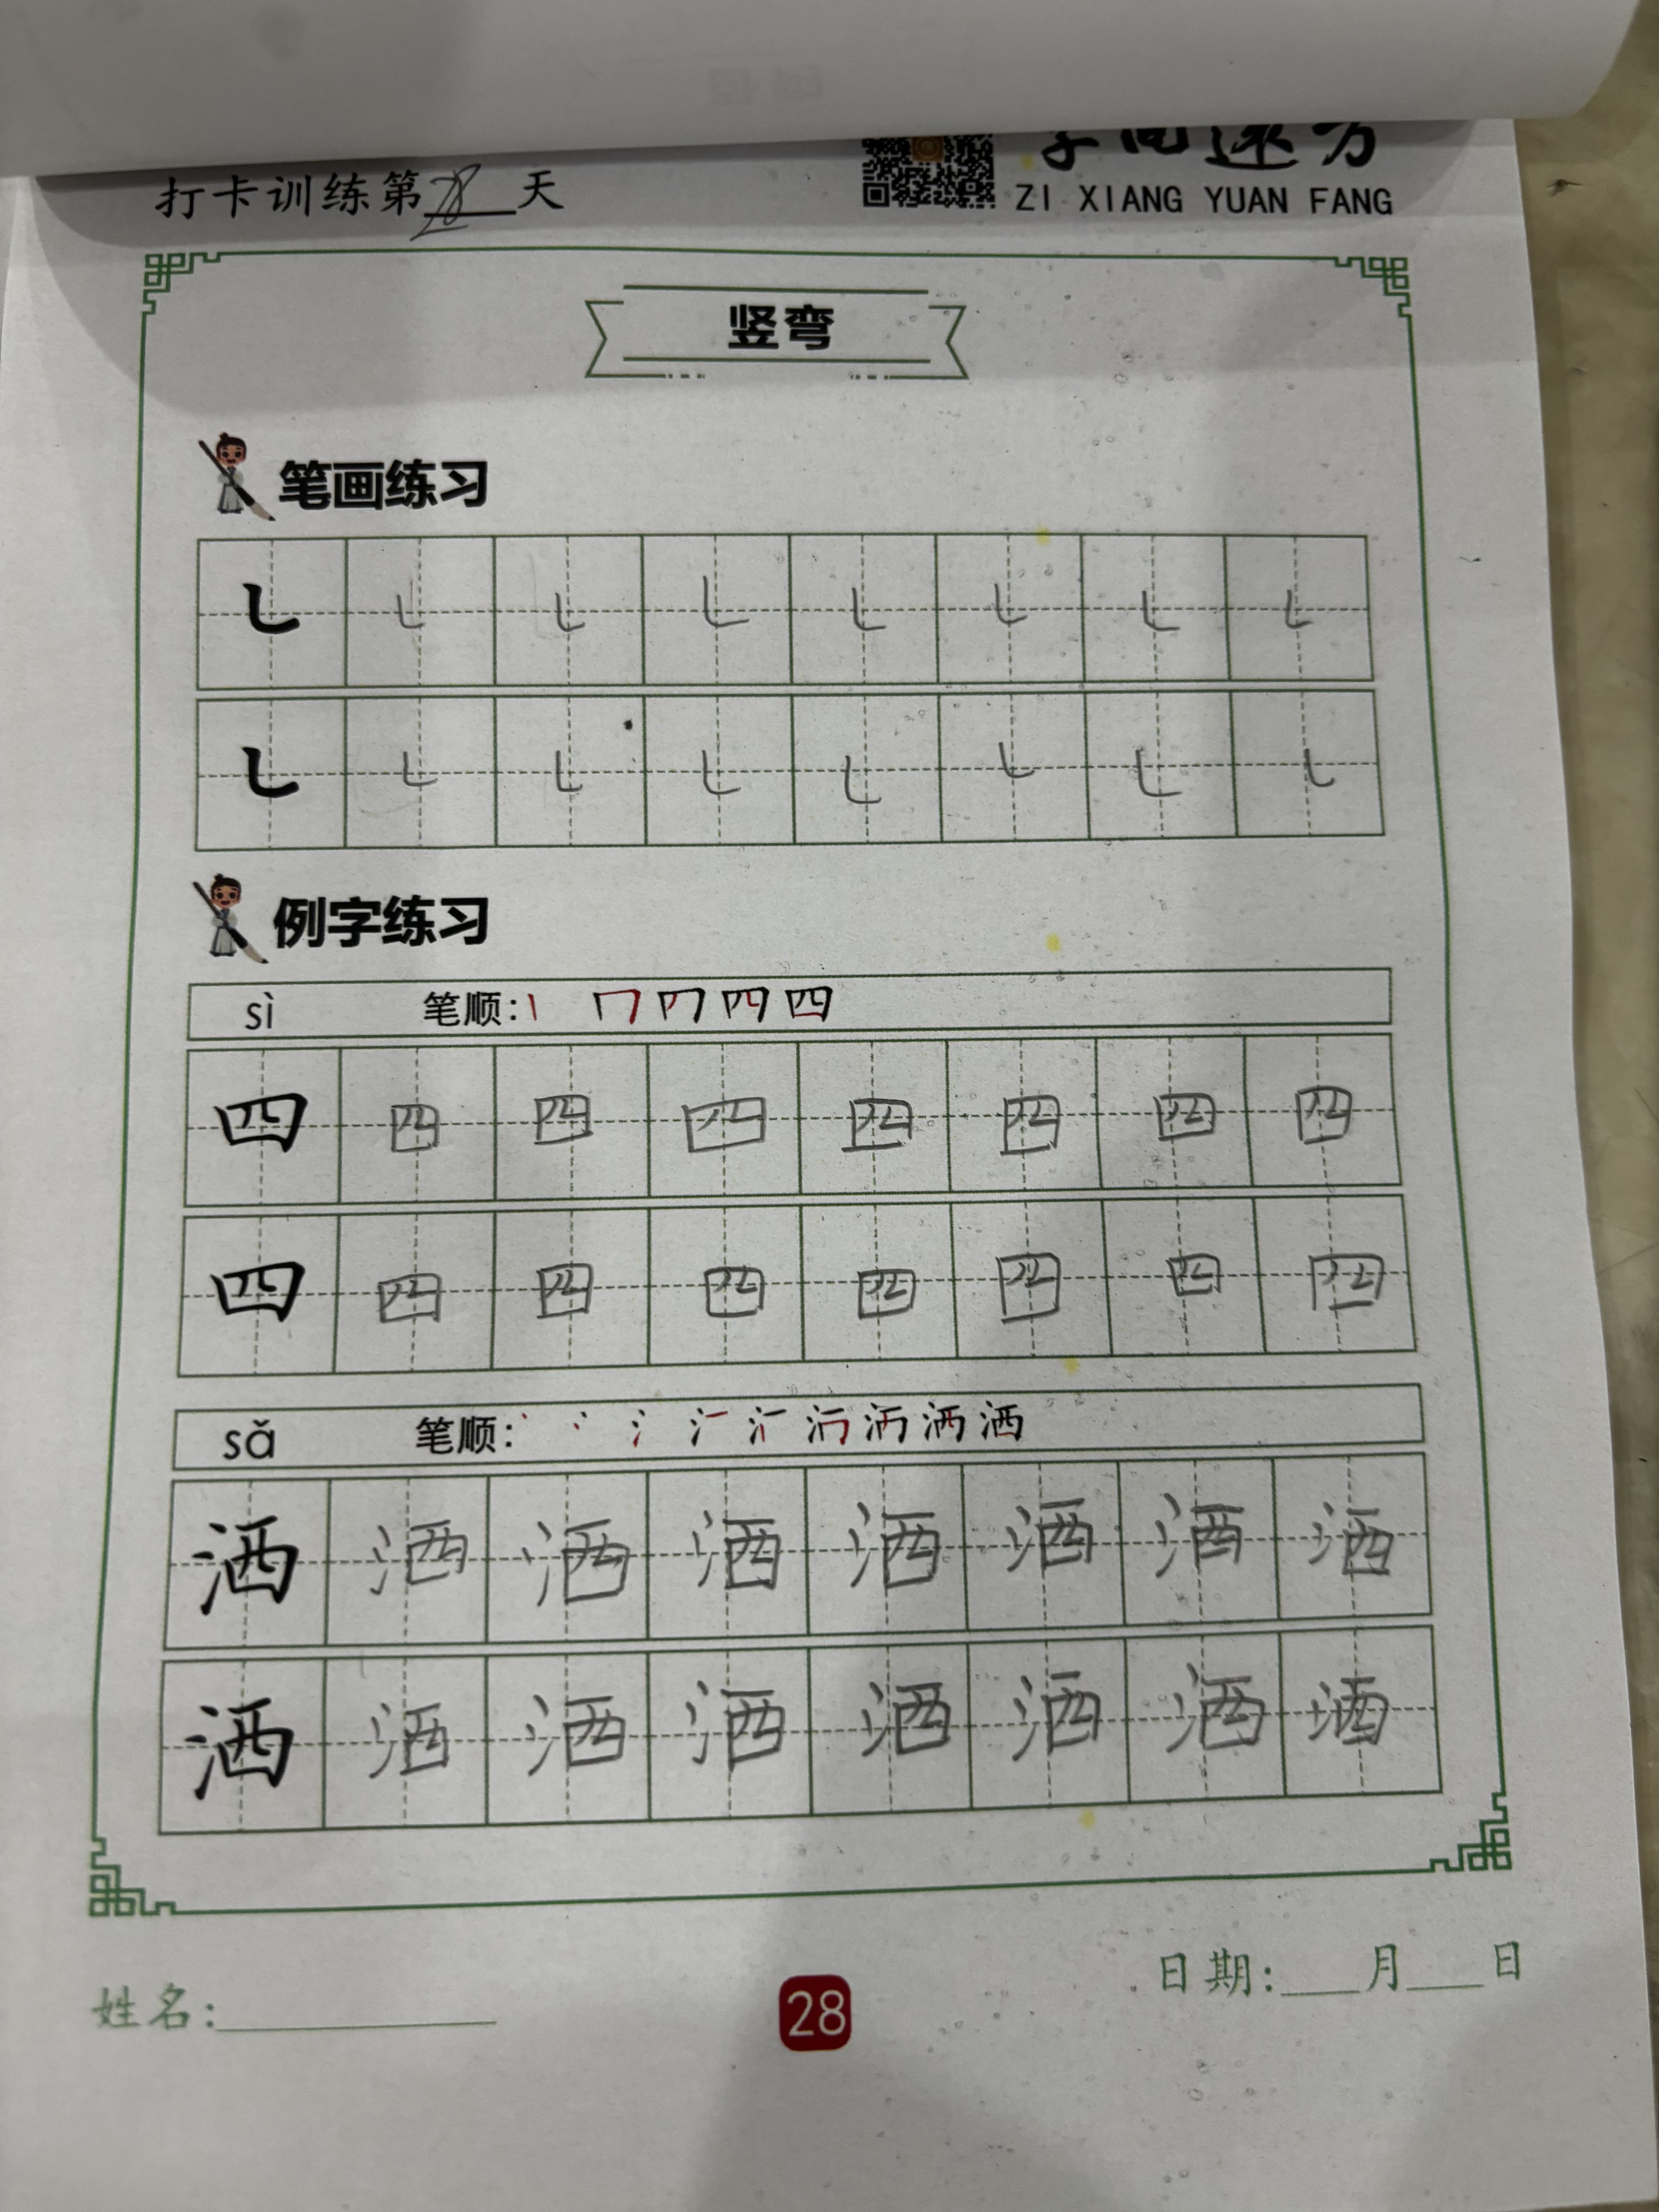 打卡训练第28天
ZI XIANG YUAN FANG
竖弯
笔画练习
㇄ ㇄ ㇄ ㇄ ㇄ ㇄ ㇄ ㇄
㇄ ㇄ ㇄ ㇄ ㇄ ㇄ ㇄ ㇄
例字练习
sì 笔顺: 四
四 四 四 四 四 四 四 四
四 四 四 四 四 四 四 四
sǎ 笔顺: 洒
洒 洒 洒 洒 洒 洒 洒 洒
洒 洒 洒 洒 洒 洒 洒 洒
姓名: 28 日期: 月 日